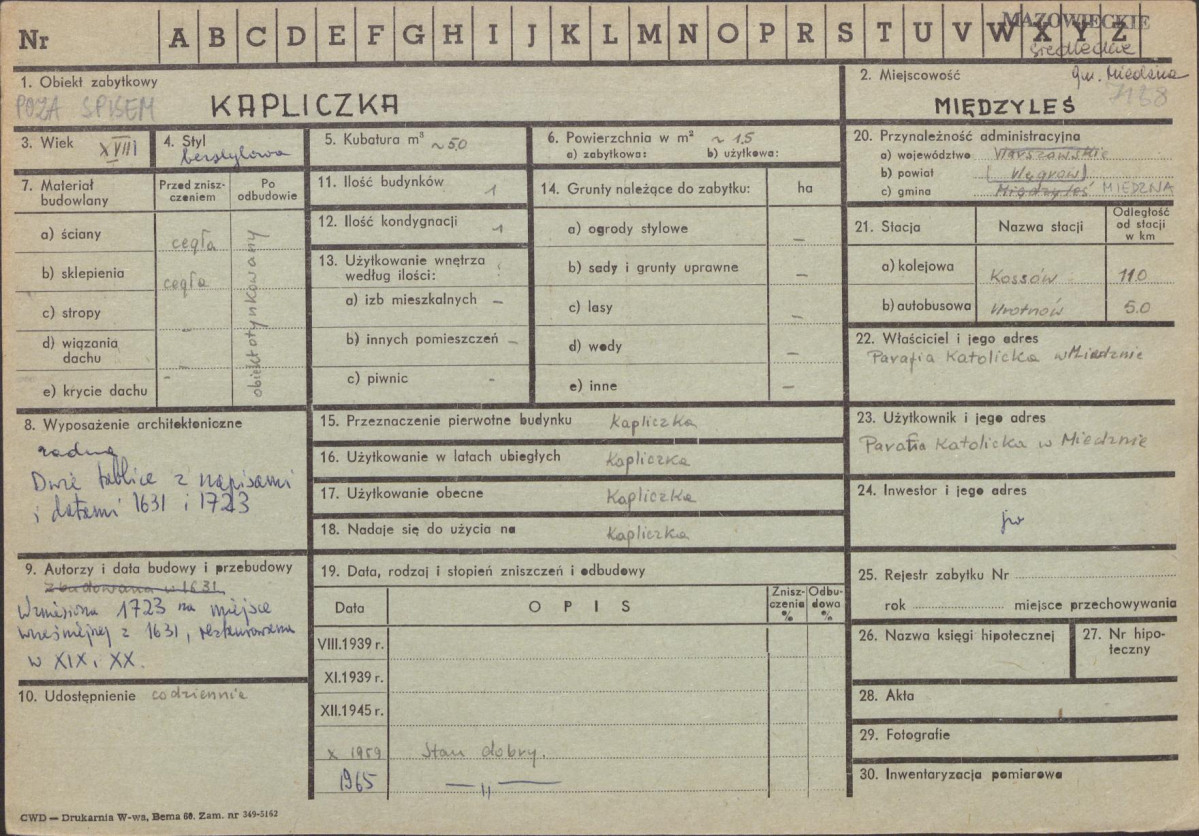 Nr A B C D E F G H I J K L M N O P R S T U V W X Y Z
MAZOWIECKIE
siedleckie
gm. Miedzna
7168
1. Obiekt zabytkowy
POZA SPISEM
KAPLICZKA
2. Miejscowość
MIĘDZYLEŚ
3. Wiek XVIII
4. Styl
bezstylowa
5. Kubatura m³ ~50
6. Powierzchnia w m² ~ 15
a) zabytkowa: b) użytkowa:
7. Materiał budowlany
Przed zniszczeniem
Po odbudowie
a) ściany cegła
b) sklepienia cegła
c) stropy –
d) wiązania dachu –
e) krycie dachu -
obiekt otynkowany
8. Wyposażenie architektoniczne
Dwie tablice z napisami
i datami 1631 i 1723
9. Autorzy i data budowy i przebudowy
Zbudowana w 1631.
Wzniesiona 1723 na miejsce
wcześniejszej z 1631, restaurowana
w XIX i XX.
10. Udostępnienie codziennie
11. Ilość budynków 1
12. Ilość kondygnacji 1
13. Użytkowanie wnętrza
według ilości:
a) izb mieszkalnych –
b) innych pomieszczeń –
c) piwnic -
14. Grunty należące do zabytku: ha
a) ogrody stylowe –
b) sady i grunty uprawne –
c) lasy –
d) wody –
e) inne –
15. Przeznaczenie pierwotne budynku Kapliczka
16. Użytkowanie w latach ubiegłych Kapliczka
17. Użytkowanie obecne Kapliczka
18. Nadaje się do użycia na Kapliczka
19. Data, rodzaj i stopień zniszczeń i odbudowy
Data OPIS Zniszczenia % Odbudowa %
VIII.1939 r.
XI.1939 r.
XII.1945 r.
X 1959 Stan dobry.
1965 — „ —
20. Przynależność administracyjna
a) województwo Warszawskie
b) powiat (Węgrów)
c) gmina Międzyleś MIEDZNA
21. Stacja Nazwa stacji Odległość od stacji w km
a) kolejowa Kossów 11.0
b) autobusowa Wrotnów 5.0
22. Właściciel i jego adres
Parafia Katolicka w Miedznie
23. Użytkownik i jego adres
Parafia Katolicka w Miedznie
24. Inwestor i jego adres
jw
25. Rejestr zabytku Nr
rok miejsce przechowywania
26. Nazwa księgi hipotecznej
27. Nr hipoteczny
28. Akta
29. Fotografie
30. Inwentaryzacja pomiarowa
CWD — Drukarnia W-wa, Bema 60. Zam. nr 349-5162